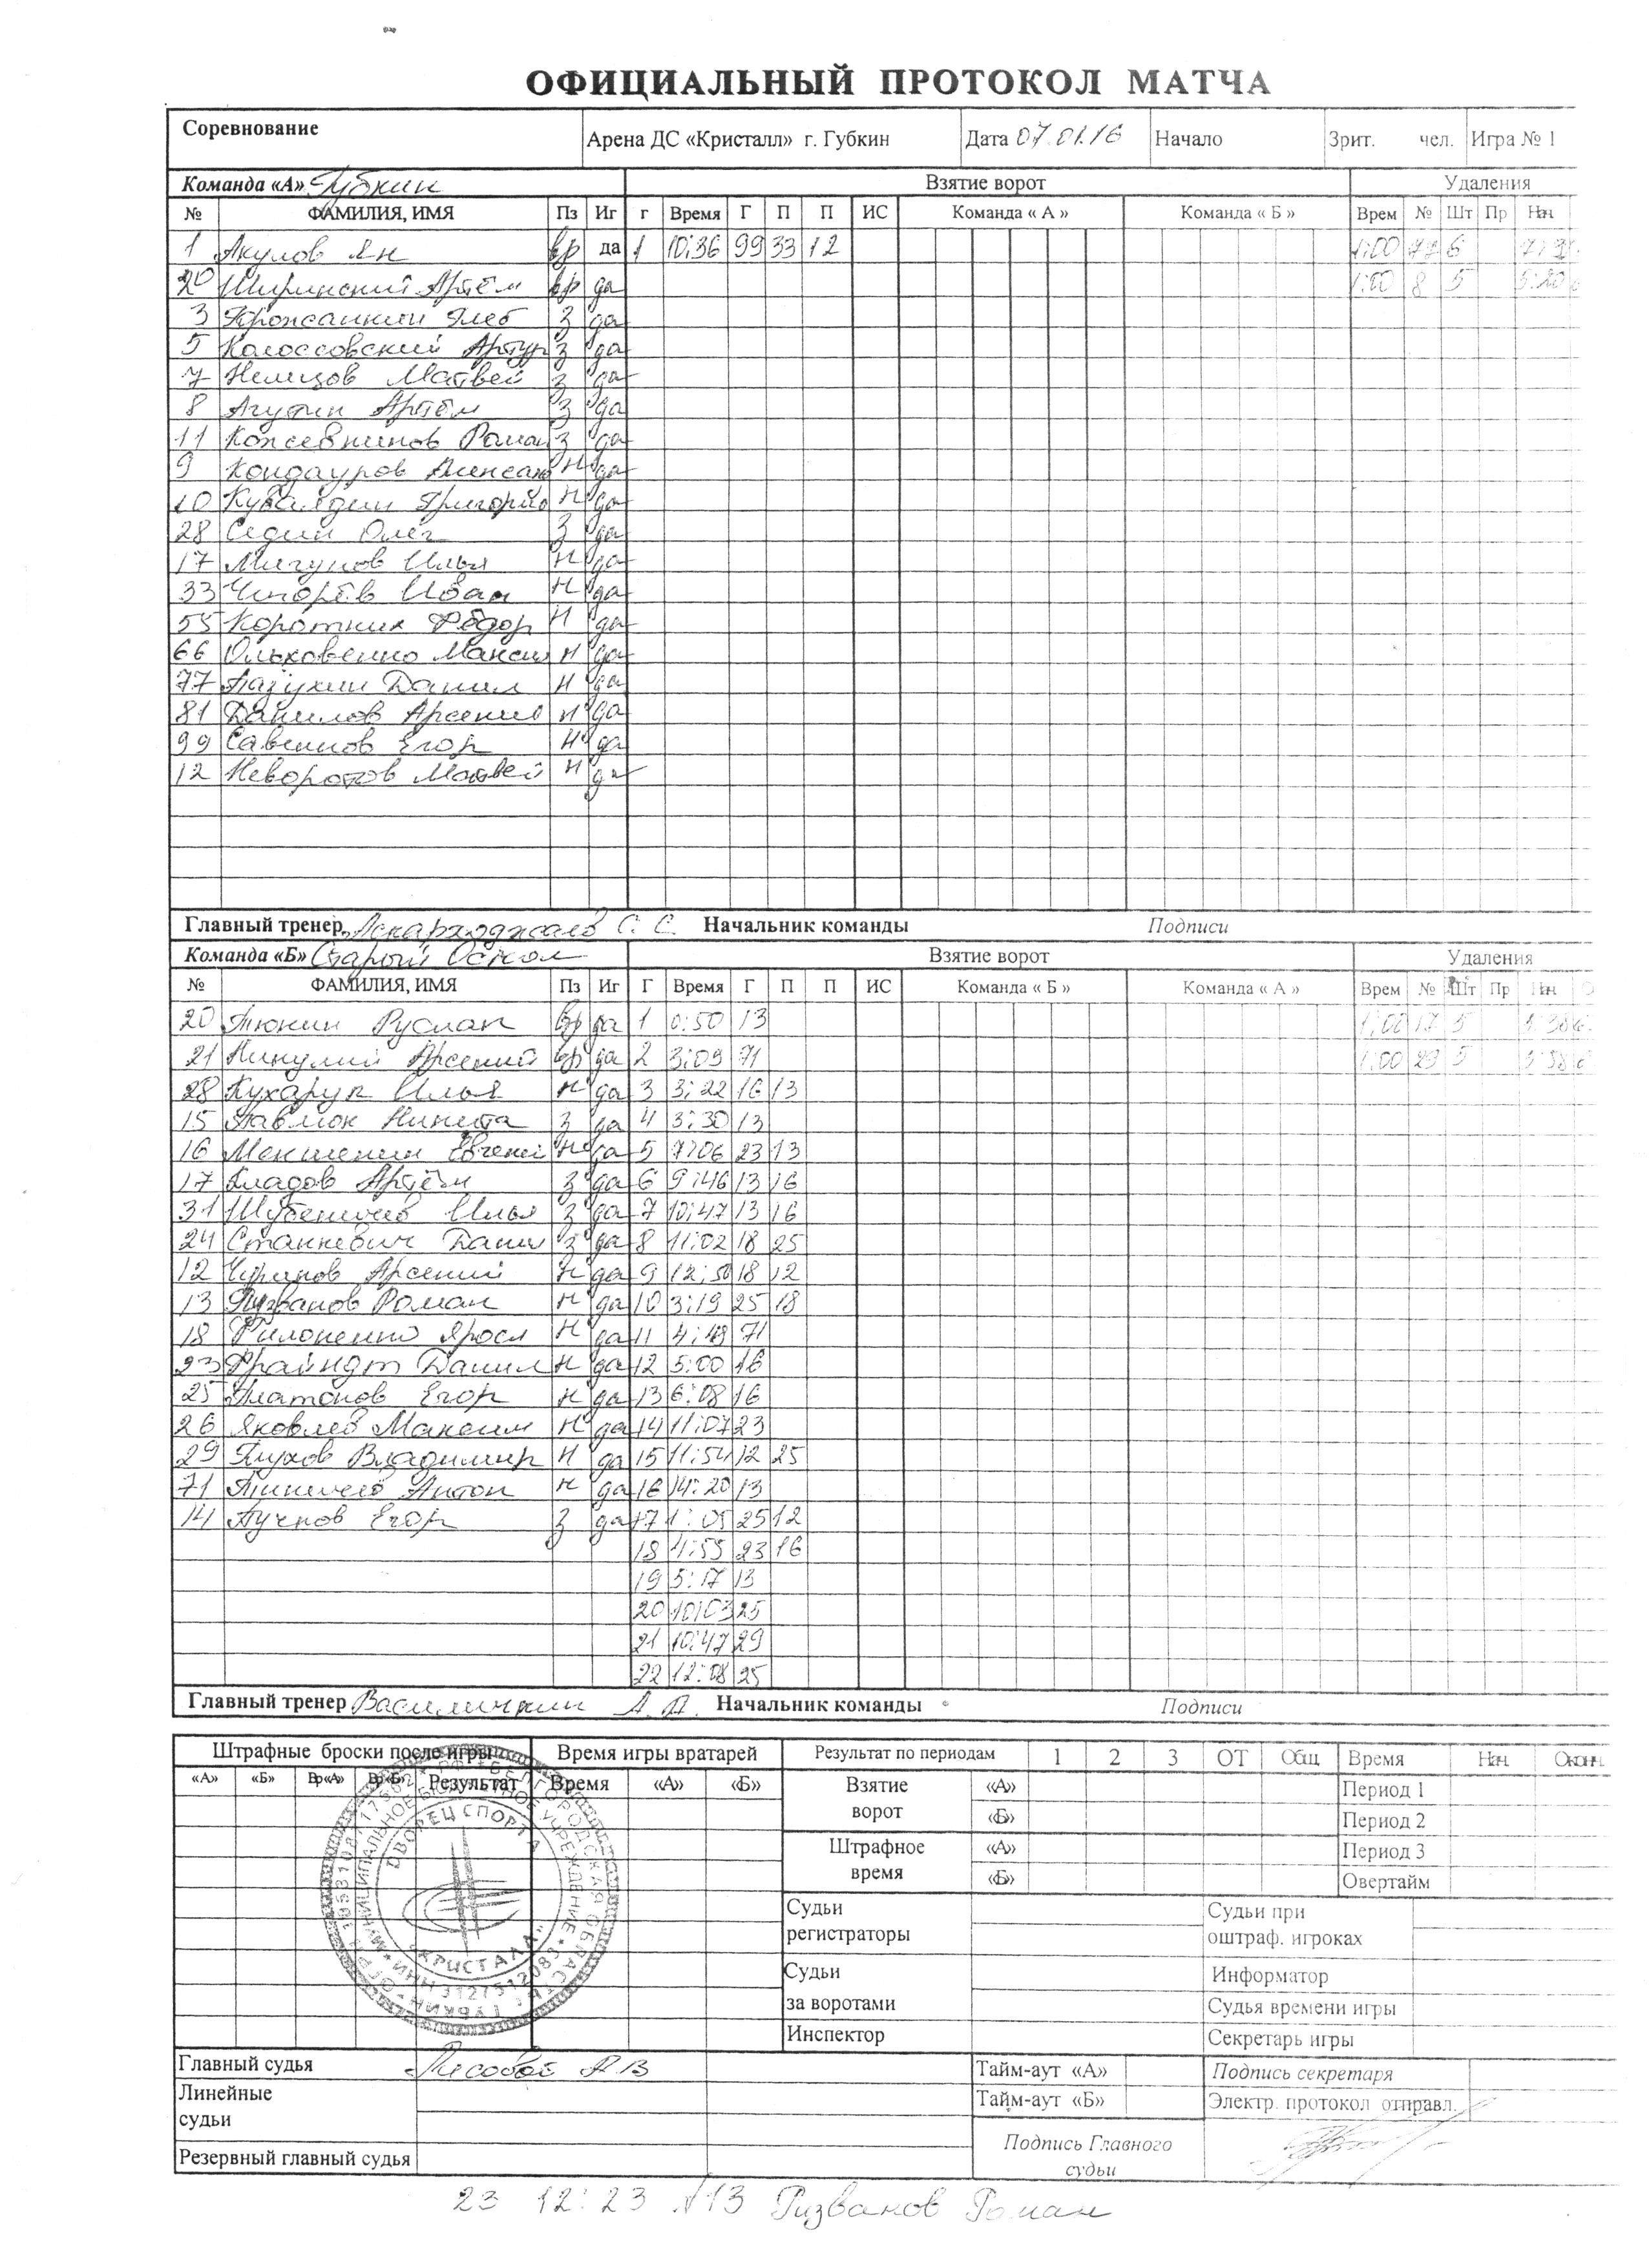 ОФИЦИАЛЬНЫЙ ПРОТОКОЛ МАТЧА
Соревнование Арена ДС «Кристалл» г. Губкин Дата 07.01.16 Начало Зрит. чел. Игра № 1
Команда «А» Губкин Взятие ворот Удаления
№ ФАМИЛИЯ, ИМЯ Пз Иг г Время Г П П ИС Команда « А » Команда « Б » Врем № Шт Пр Нач
1 Акулов Ян вр да 1 10:36 99 33 12 1:00 77 6
20 Ширинский Артём вр да 1:00 8 5 5:20
3 Глеб з да
5 Колоссовский Артур з да
7 Немцов Матвей з да
8 Агутин Артём з да
11 Кожевников Роман з да
9 Кондауров н да
10 н да
28 Седин Олег з да
17 Мигунов Илья н да
33 Иван н да
55 Коротких Фёдор н да
66 Ольховенко Максим н да
77 Пазухин Данил н да
81 Данилов Арсений н да
99 Савенков Егор н да
12 Неворотов Матвей н да
Главный тренер С. С. Начальник команды Подписи
Команда «Б» Старый Оскол Взятие ворот Удаления
№ ФАМИЛИЯ, ИМЯ Пз Иг Г Время Г П П ИС Команда « Б » Команда « А » Врем № Шт Пр Нач
20 Тюнин Руслан вр да 1 0:50 13 1:00 17 5
21 Арсений вр да 2 3:09 71 1:00 29 5
28 Кухарук Илья н да 3 3:22 16 13
15 Павлюк Никита з да 4 3:30 13
16 Менишенин Евгений н да 5 7:06 23 13
17 Кладов Артём з да 6 9:46 13 16
31 Илья з да 7 10:47 13 16
24 Станкевич Данил з да 8 11:02 18 25
12 Чурапов Арсений н да 9 12:50 18 12
13 Ризванов Роман н да 10 3:19 25 18
18 Филоненко Яросл н да 11 4:48 71
23 Фрайндт Данил н да 12 5:00 16
25 Платонов Егор н да 13 6:08 16
26 Яковлев Максим н да 14 11:07 23
29 Глухов Владимир н да 15 11:54 12 25
71 Антон н да 16 14:20 13
14 Пучков Егор з да 17 1:05 25 12
18 4:55 23 16
19 5:17 13
20 10:03 25
21 10:47 29
22 12:08 25
Главный тренер Начальник команды Подписи
Штрафные броски после игры Время игры вратарей Результат по периодам 1 2 3 ОТ Общ Время Нач. Оконч.
«А» «Б» Вр«А» Вр«Б» Результат Время «А» «Б» Взятие ворот «А» Период 1
«Б» Период 2
Штрафное время «А» Период 3
«Б» Овертайм
Судьи регистраторы Судьи при оштраф. игроках
Судьи за воротами Информатор
Судья времени игры
Инспектор Секретарь игры
ДВОРЕЦ СПОРТА
«КРИСТАЛЛ»
ИНН 3127512083
Главный судья Лесовой А В Тайм-аут «А» Подпись секретаря
Линейные судьи Тайм-аут «Б» Электр. протокол отправл.
Подпись Главного судьи
Резервный главный судья
23 12:23 №13 Ризванов Роман